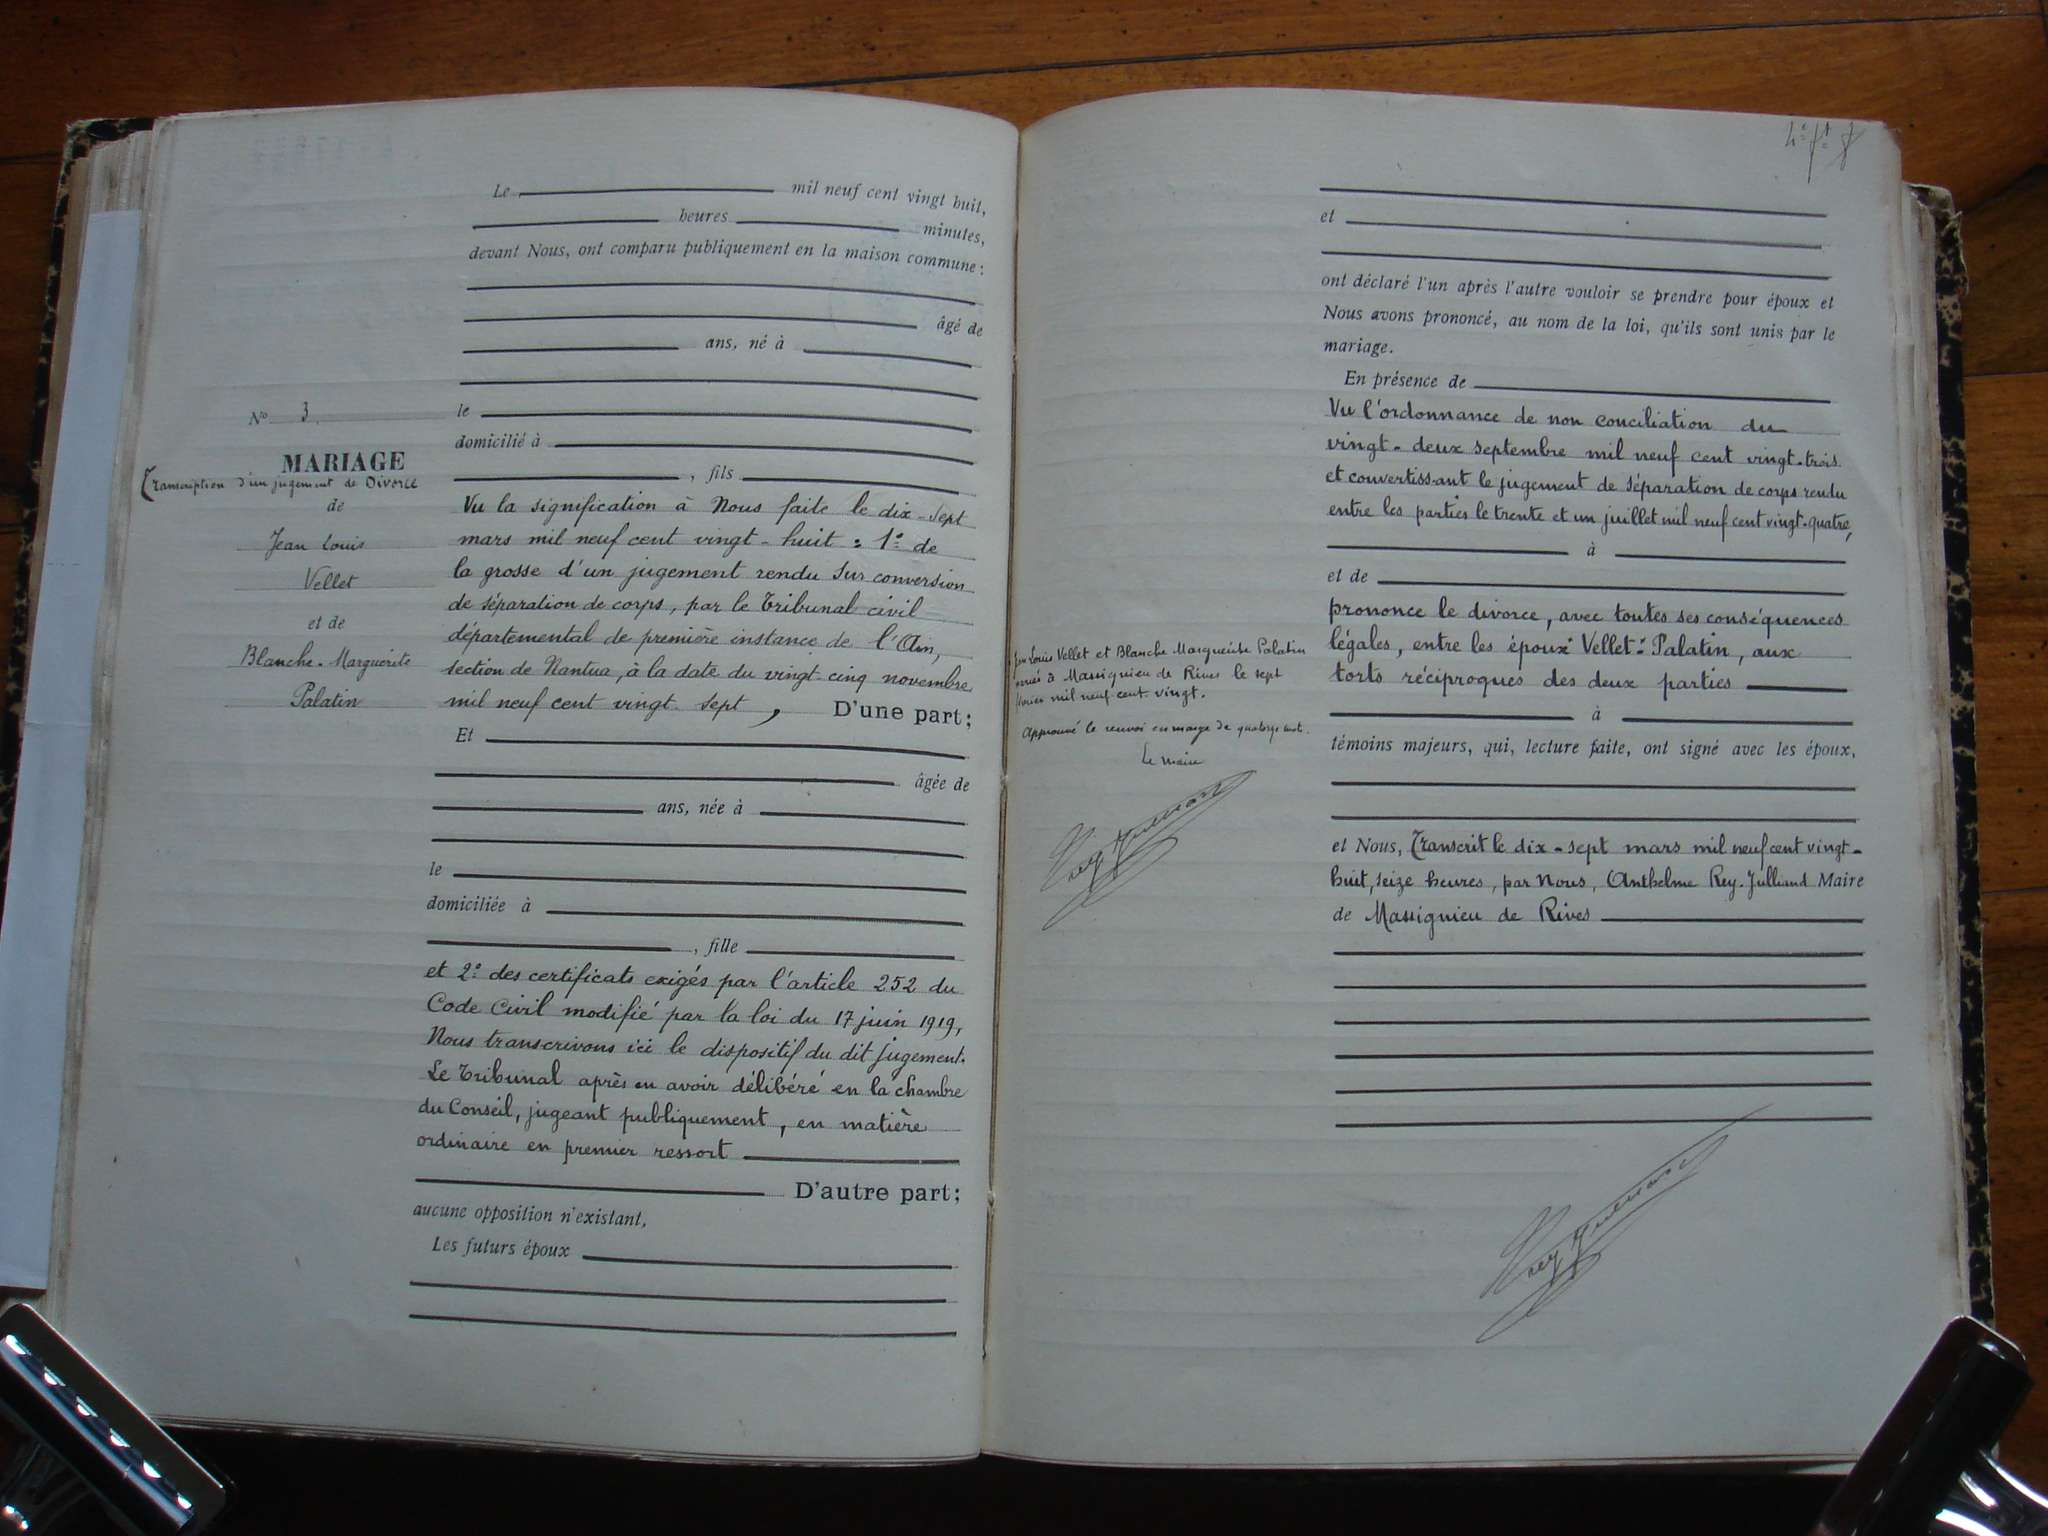 Le mil neuf cent vingt huit,
heures minutes,
devant Nous, ont comparu publiquement en la maison commune :
âgé de
ans, né à
le
domicilié à
, fils
Nº 3
MARIAGE
Transcription d'un jugement de Divorce
de
Jean Louis
Vellet
et de
Blanche-Marguerite
Palatin
Vu la signification à Nous faite le dix-sept
mars mil neuf cent vingt-huit : 1º de
la grosse d'un jugement rendu sur conversion
de séparation de corps, par le Tribunal civil
départemental de première instance de l'Ain,
section de Nantua, à la date du vingt-cinq novembre
mil neuf cent vingt-sept, D'une part;
Et
âgée de
ans, née à
le
domiciliée à
, fille
et 2º des certificats exigés par l'article 252 du
Code Civil modifié par la loi du 17 juin 1919,
Nous transcrivons ici le dispositif du dit jugement.
Le Tribunal après en avoir délibéré en la chambre
du Conseil, jugeant publiquement, en matière
ordinaire en premier ressort
D'autre part;
aucune opposition n'existant,
Les futurs époux
et
ont déclaré l'un après l'autre vouloir se prendre pour époux et
Nous avons prononcé, au nom de la loi, qu'ils sont unis par le
mariage.
En présence de
Vu l'ordonnance de non conciliation du
vingt-deux septembre mil neuf cent vingt-trois
et convertissant le jugement de séparation de corps rendu
entre les parties le trente et un juillet mil neuf cent vingt-quatre,
à
et de
prononce le divorce, avec toutes ses conséquences
légales, entre les époux Vellet-Palatin, aux
torts réciproques des deux parties
à
témoins majeurs, qui, lecture faite, ont signé avec les époux,
et Nous, Transcrit le dix-sept mars mil neuf cent vingt-
huit, seize heures, par Nous, Anthelme Rey-Julliand Maire
de Massignieu de Rives
Louis Vellet et Blanche Marguerite Palatin
à Massignieu de Rives le sept
mil neuf cent vingt.
Approuvé le renvoi en marge de quatorze mots.
Le Maire